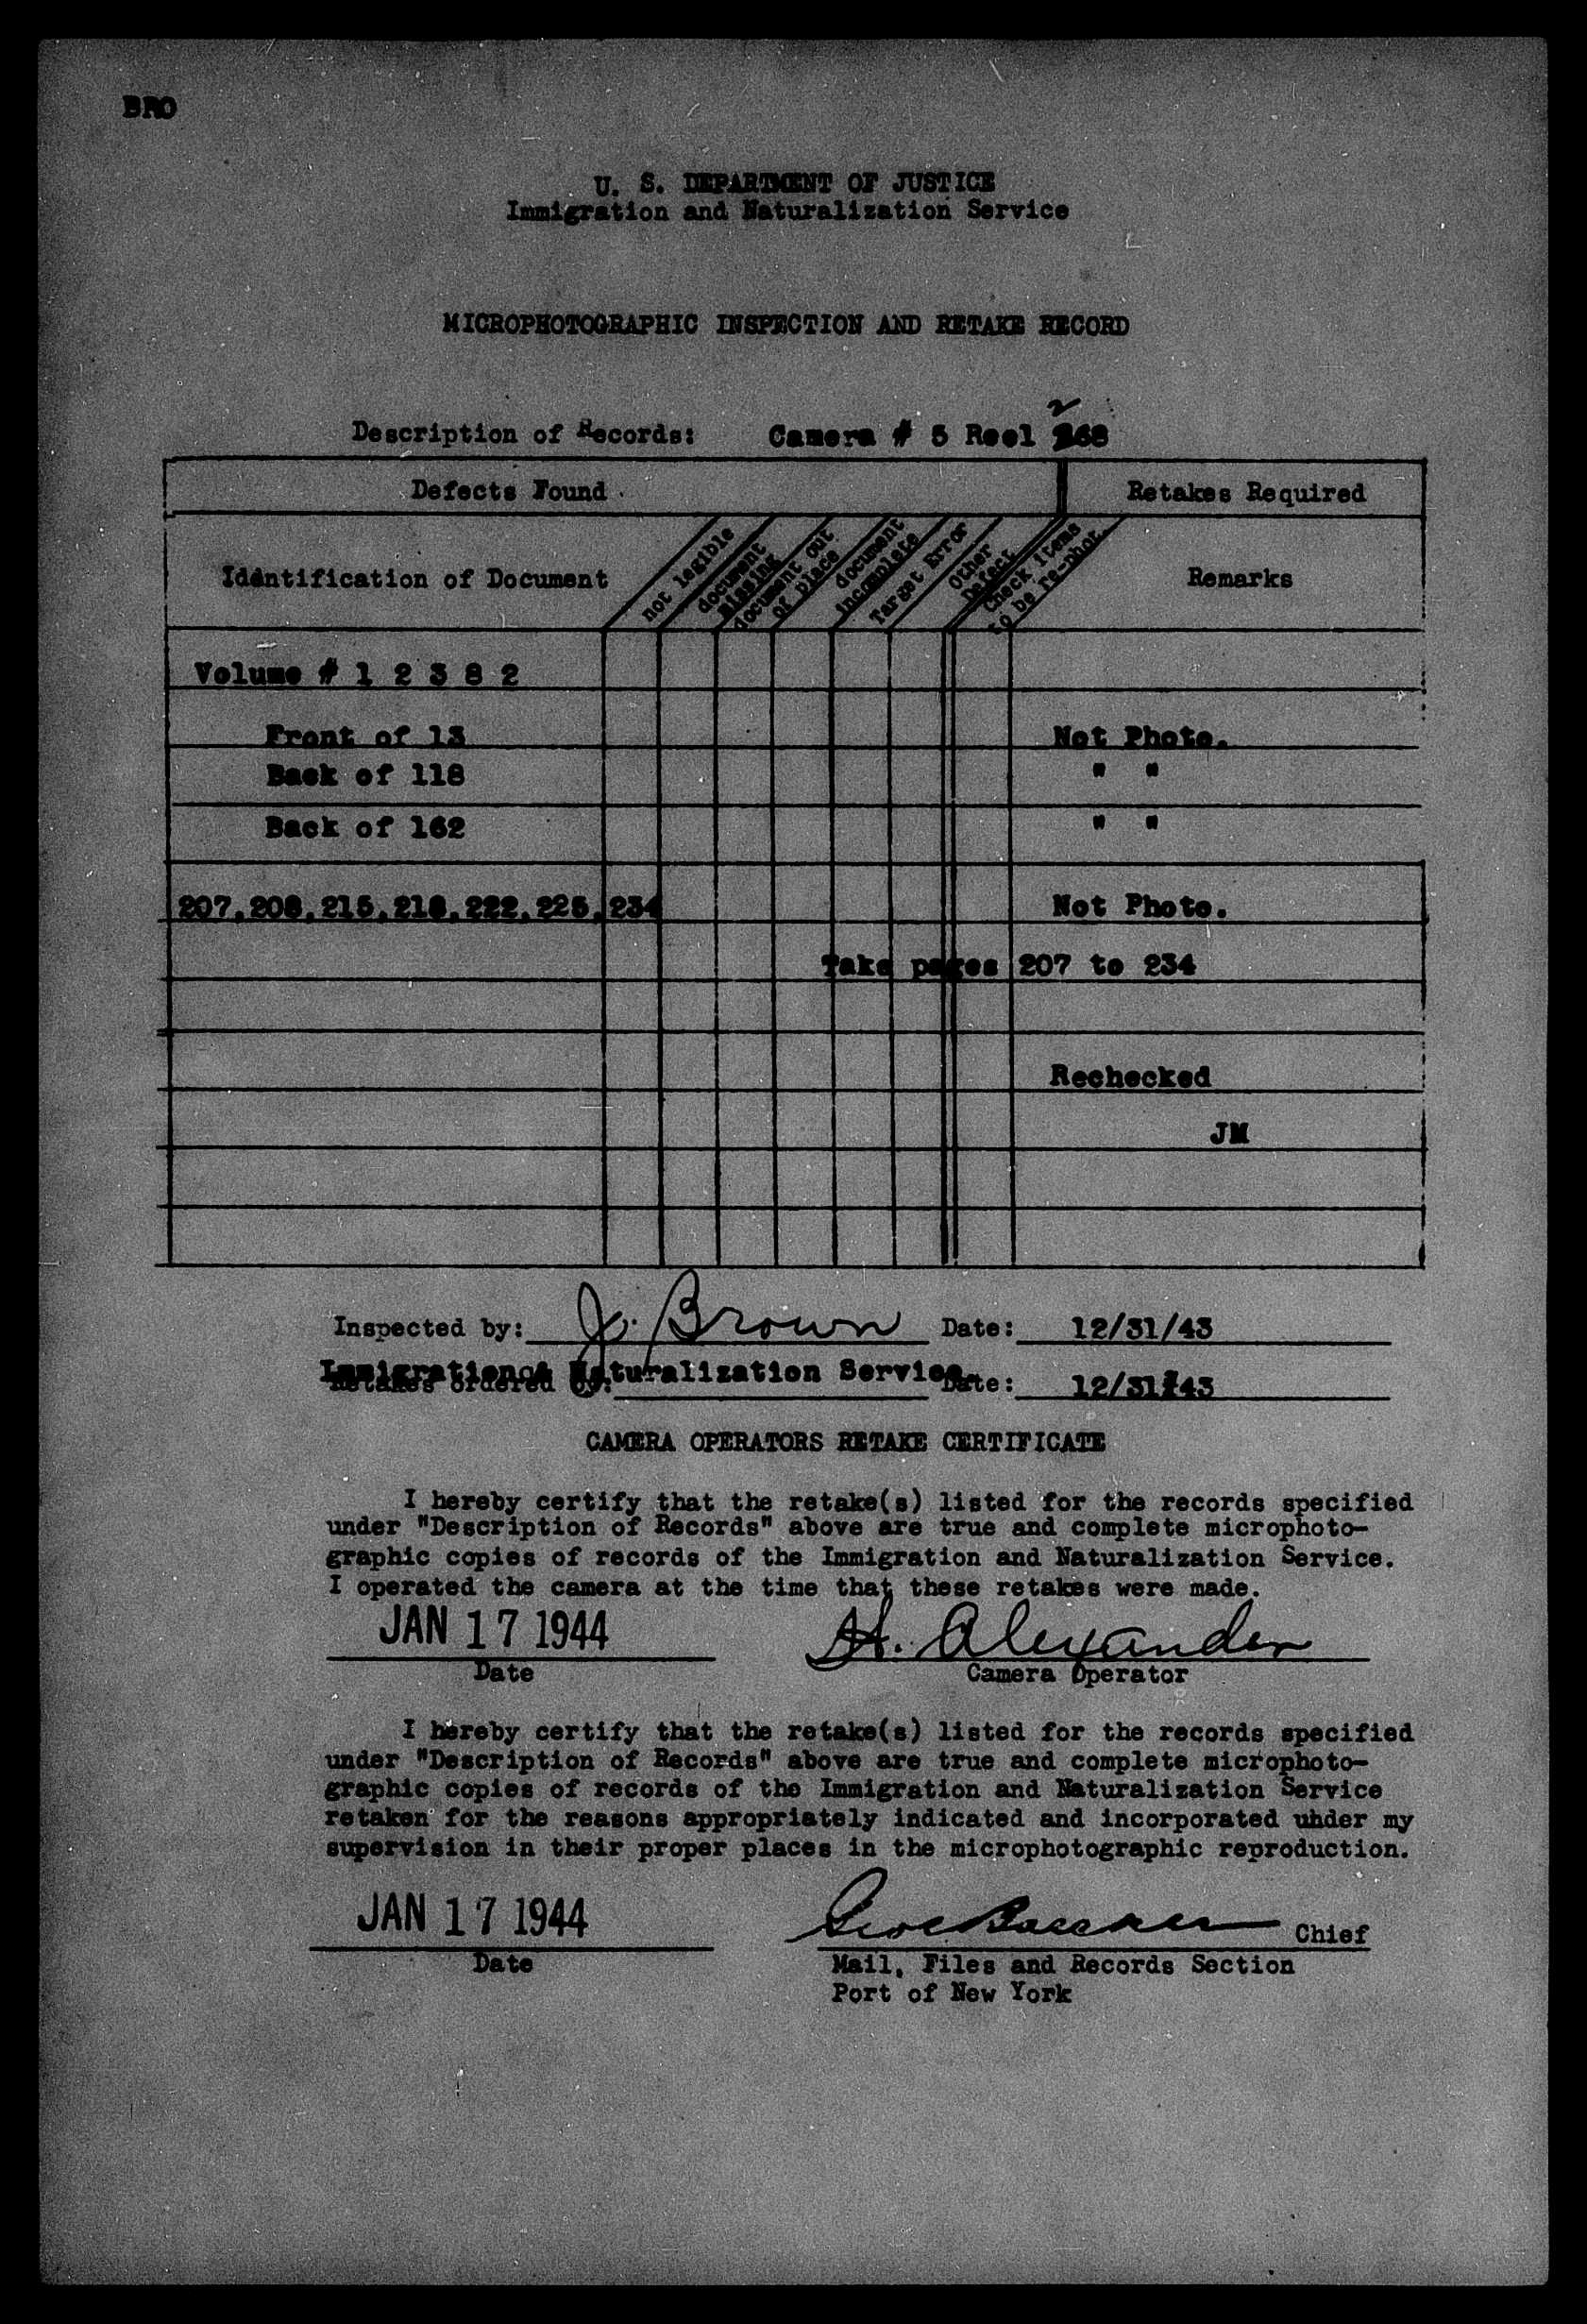 BRO
U. S. DEPARTMENT OF JUSTICE
Immigration and Naturalization Service
MICROPHOTOGRAPHIC INSPECTION AND RETAKE RECORD
2
Description of Records: Camera # 5 Reel 268
Defects Found
Retakes Required
Identification of Document
not legible
document missing
document out of place
document incomplete
Target Error
Other Defect
Check items to be re-phot.
Remarks
Volume # 1 2 3 8 2
Front of 13 Not Photo.
Back of 118 " "
Back of 162 " "
207,208,215,218,222,225,234 Not Photo.
Take pages 207 to 234
Rechecked
JM
Inspected by: J. Brown Date: 12/31/43
Immigration & Naturalization Service
Retakes ordered by: Date: 12/31/43
CAMERA OPERATORS RETAKE CERTIFICATE
I hereby certify that the retake(s) listed for the records specified
under "Description of Records" above are true and complete microphoto-
graphic copies of records of the Immigration and Naturalization Service.
I operated the camera at the time that these retakes were made.
JAN 17 1944 H. Alexander
Date Camera Operator
I hereby certify that the retake(s) listed for the records specified
under "Description of Records" above are true and complete microphoto-
graphic copies of records of the Immigration and Naturalization Service
retaken for the reasons appropriately indicated and incorporated under my
supervision in their proper places in the microphotographic reproduction.
JAN 17 1944 Chief
Date Mail, Files and Records Section
Port of New York